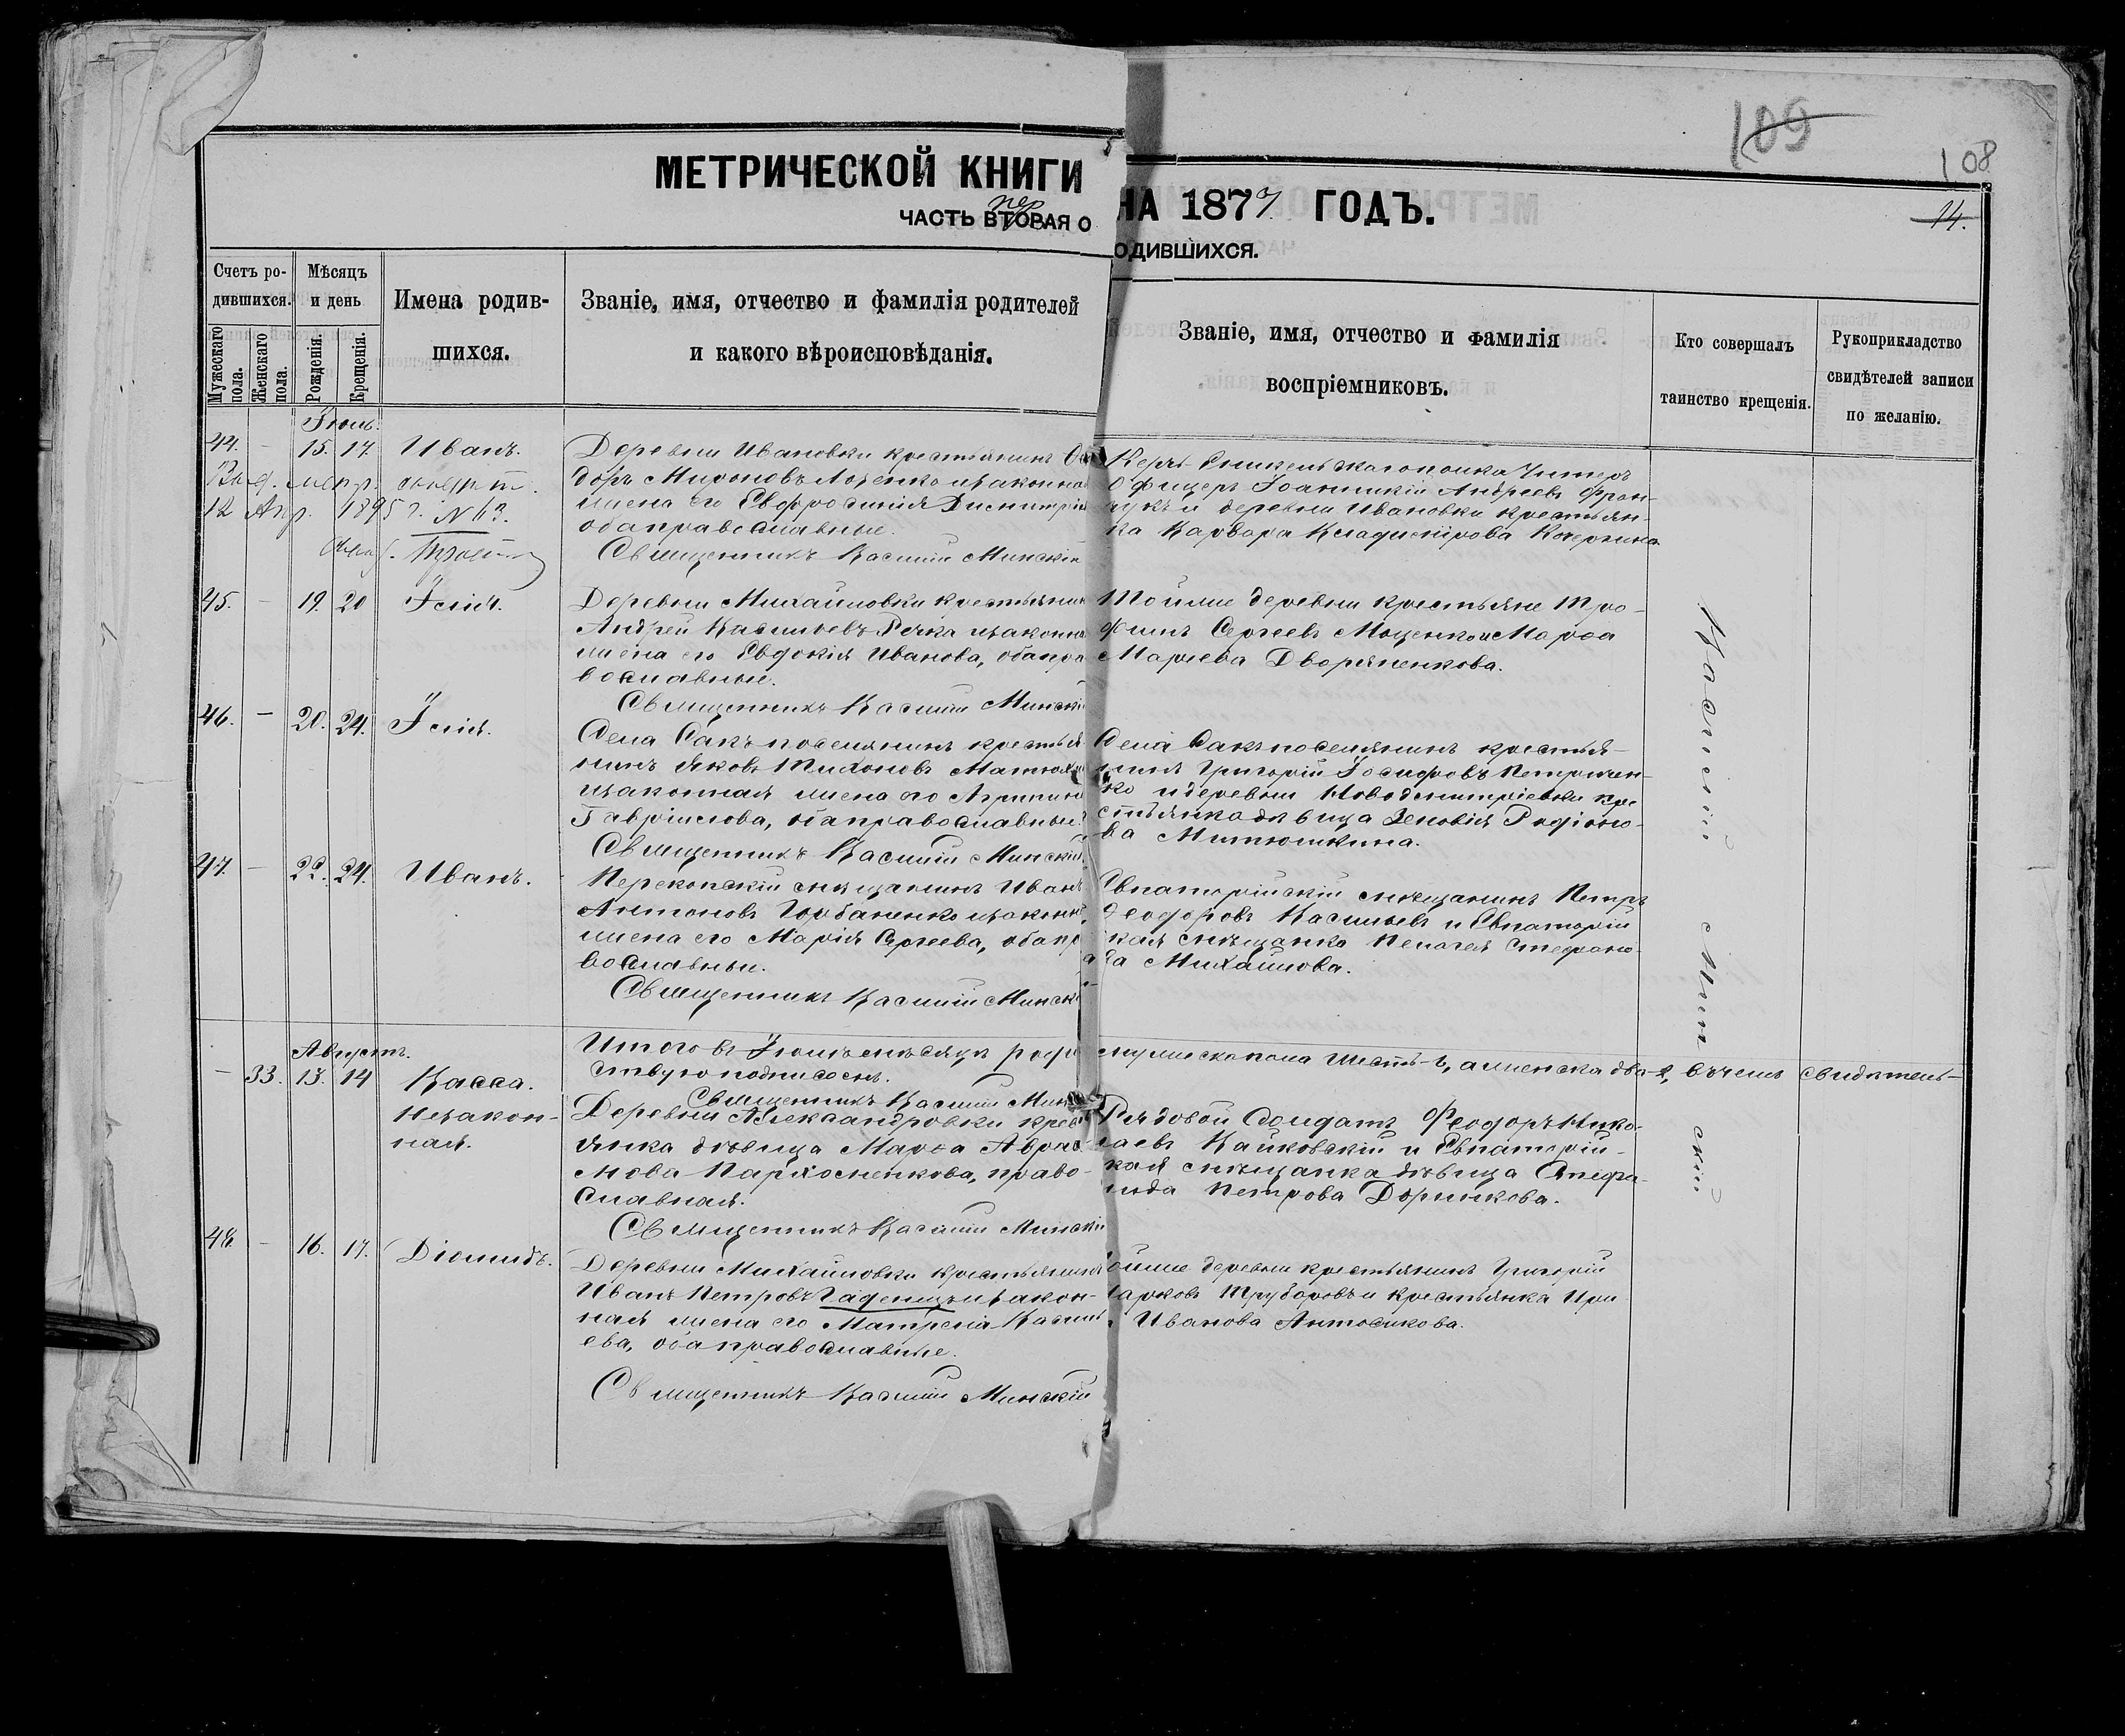 109
108
14.
МЕТРИЧЕСКОЙ КНИГИ НА 1877 ГОДЪ.
пер
ЧАСТЬ ВТОРАЯ О РОДИВШИХСЯ.
Счетъ ро-
дившихся.
Мужескаго пола.
Женскаго пола.
Мѣсяцъ
и день
Рожденія.
Крещенія.
Имена родив-
шихся.
Званіе, имя, отчество и фамилія родителей
и какого вѣроисповѣданія.
Званіе, имя, отчество и фамилія
воспріемниковъ.
Кто совершалъ
таинство крещенія.
Рукоприкладство
свидѣтелей записи
по желанію.
Іюль.
44. - 15. 17. Иванъ.
Выд. метр.
12 Апр. 1895 г. № 63.
Деревни Ивановки крестьянинъ
доръ Мироновъ и законная
жена его Евфросинія Димитрія
оба православные.
Священникъ Василій Минскій
Офицеръ Іоанникій Андреевъ Фран-
чукъ и деревни Ивановки крестьян-
ка Варвара Владимірова Кочергина.
45. - 19. 20 Илія.
Деревни Михайловки крестьянинъ
Андрей Васильевъ Рѣчка и законная
жена его Евдокія Иванова, оба пра
вославные.
Священникъ Василій Минскій
Той же деревни крестьяне Тро-
фимъ Сергеевъ Моценко и Марѳа
Дворяненкова.
46. - 20. 24. Илія.
Села Сакъ поселянинъ крестья
нинъ Яковъ Тихоновъ
законная жена его Агрипина
Гавріилова, оба православные
Священникъ Василій Минскій
Села Сакъ поселянинъ крестья-
нинъ Григорій Іосифовъ
ко и деревни Новодимитріевки кре
стьянка дѣвица Зеновія Родіоно-
ва Митюшкина.
47. - 22. 24. Иванъ.
Перекопскій мѣщанинъ Иванъ
Антоновъ Горбаненко и законная
жена его Марія Сергеева, оба пра
вославные.
Священникъ Василій Минскій
Евпаторійскій мѣщанинъ Петръ
Феодоровъ Васильевъ и Евпаторій
кая мѣщанка Пелагея Стефано-
ва Михайлова.
Итого въ Іюлѣ мѣсяцѣ роди мужеска пола шесть-6, а женска два-2, въ чемъ свидѣтель-
ствую подписомъ.
Священникъ Василій Минскій
Августъ.
- 33. 13. 14 Васса.
Незакон-
ная.
Деревни Александровки крест
янка дѣвица Марѳа Авраа
мова Пархоменкова, право-
славная.
Священникъ Василій Минскій
Рядовой Солдатъ Феодоръ Нико-
лаевъ Вайковскій и Евпаторій-
кая мѣщанка дѣвица Стефа-
нида Петрова
48. - 16. 17. Діомидъ.
Деревни Михайловки крестьянинъ
Иванъ Петровъ Гаденецъ и закон-
ная жена его Матрена Васил
ева, оба православные.
Священникъ Василій Минскій
Той же деревни крестьянинъ Григорій
Марковъ Труборовъ и крестьянка Ири
Иванова Антосикова.
Василій Минскій